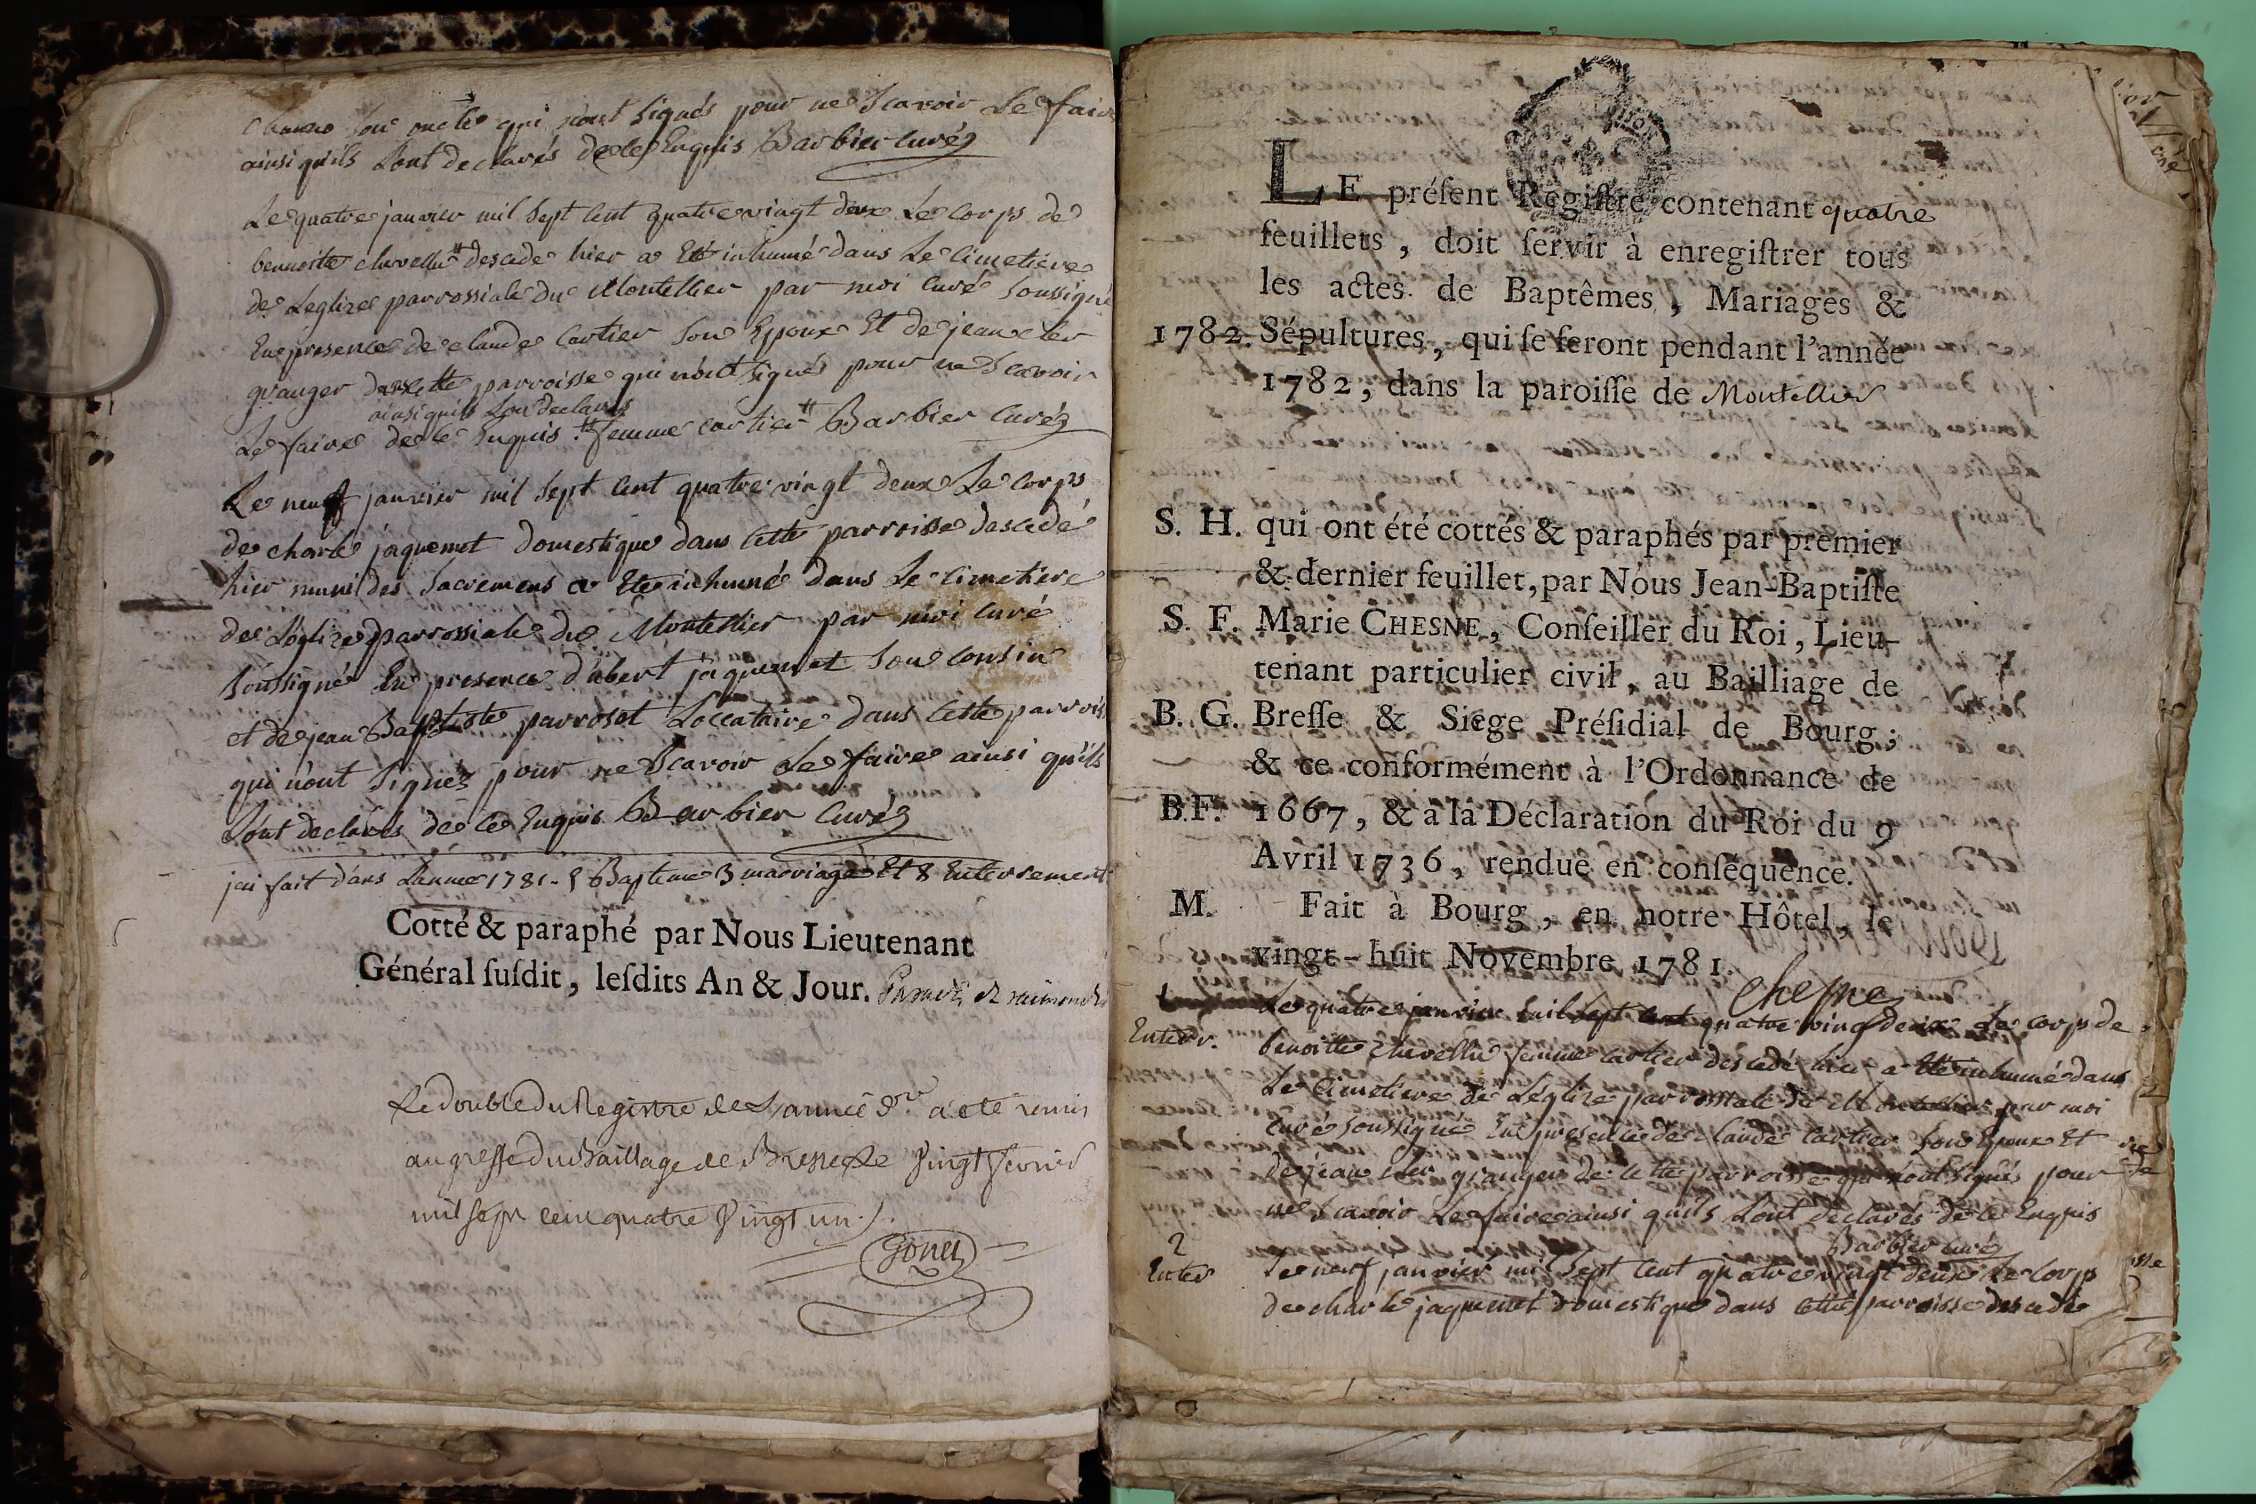 son oncle qui n'ont signés pour ne Scavoir Le faire
ainsi qu'ils Sont declarés de ce Enquis Barbier curé
Le quatre janvier mil Sept Cent quatre vingt deux Le Corps de
bennoite chevellu # descede hier a Eté inhumé dans Le Cimetiere
de Leglize parrossiale du Montellier par moi Curé Soussigné
En presence de claude Cartier Son Epoux Et de jean
granger dans cette parroisse qui n'ont signés pour ne Scavoir
ainsi quils Son declarés
Le faire de ce Enquis. # femme cartier # Barbier Curé
Le neuf janvier mil Sept Cent quatre vingt deux Le Corps
de charle jaquemet domestique dans Cette parroisse descedé
hier muni des Sacremens a Eté inhumé dans Le Cimetiere
de Léglize parrossiale du Montellier par moi Curé
Soussigné En presence d'abert jaquemet Son Consin
et de jean Baptiste parroset Loccataire dans Cette parrois
qui n'ont Signés pour ne Scavoir Le faire ainsi qu'ils
Sont declarés de ce Enquis Barbier Curé
jai fait dans Lannee 1781. 5 Bapteme 3 marriage Et 8 Enterrement
Cotté & paraphé par Nous Lieutenant
Général ſuſdit, leſdits An & Jour.
Le double du Registre de L'année d.re a été remis
au greffe du Baillage de Bresse le Vingt fevrier
mil sept cent quatre Vingt un.
Gonet
LE préſent Regiſtre contenant quatre
feuillets, doit ſervir à enregiſtrer tous
les actes de Baptêmes, Mariages &
1782. Sépultures, qui ſe feront pendant l'année
1782, dans la paroiſſe de Montellier
S. H. qui ont été cottés & paraphés par premier
& dernier feuillet, par Nous Jean-Baptiſte
S. F. Marie CHESNE, Conſeiller du Roi, Lieu-
tenant particulier civil, au Bailliage de
B. G. Breſſe & Siége Préſidial de Bourg;
& ce conformément à l'Ordonnance de
B.F. 1667, & à la Déclaration du Roi du 9
Avril 1736, rendue en conſéquence.
M. Fait à Bourg, en notre Hôtel, le
vingt-huit Novembre 1781.
Chesne
1 Le quatre janvier mil Sept Cent quatre ving deux Le corps de
Enterr. benoitte chevellu femme cartier descedé hier a Eté inhumé dans
Le Cimetiere de Léglize parrossiale de Montellier par moi
Curé Soussigné En presence de claude Cartier Son Epoux Et
de jean granger de cette parroisse qui n'ont Signés pour
ne Scavoir Le faire ainsi quils Sont declarés de ce Enquis
Barbier curé
2 Le neuf janvier mil Sept Cent quatre vingt deux Le Corps
Enter de charle jaquemet domestique dans Cette parroisse descedé